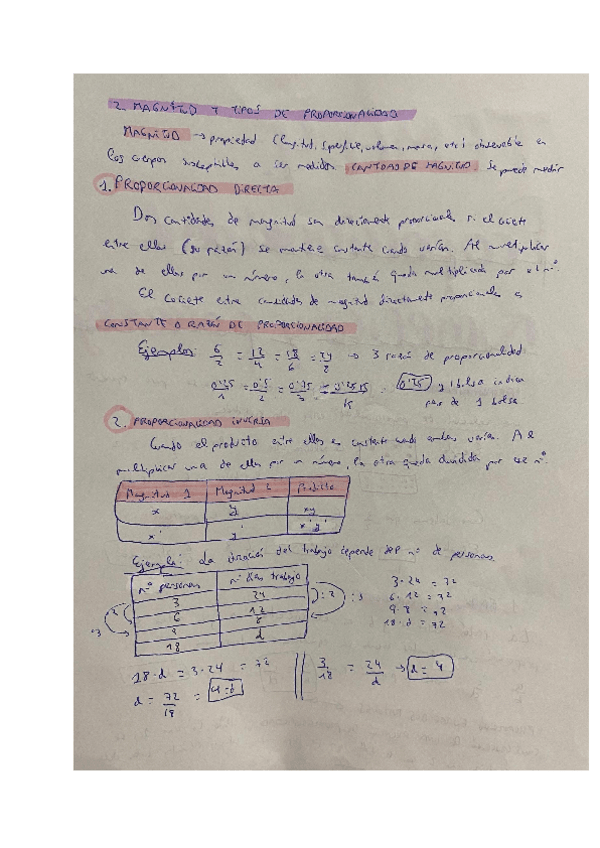 2. MAGNITUD Y TIPOS DE PROPORCIONALIDAD
MAGNITUD → propiedad (longitud, superficie, volumen, masa, etc) observable en
los cuerpos susceptibles a ser medidos. CANTIDAD DE MAGNITUD. Se puede medir
1. PROPORCIONALIDAD DIRECTA
Dos cantidades de magnitud son directamente proporcionales si el cociente
entre ellas (su razón) se mantiene constante cuando varían. Al multiplicar
una de ellas por un número, la otra también queda multiplicada por ese nº.
El cociente entre cantidades de magnitud directamente proporcionales es
CONSTANTE O RAZÓN DE PROPORCIONALIDAD
Ejemplos: 6/2 = 12/4 = 18/6 = 24/8 → 3 razón de proporcionalidad
0'25/1 = 0'5/2 = 0'75/3 = /15 = y 1 bolsa indica
de 1 bolsa
2. PROPORCIONALIDAD INVERSA
Cuando el producto entre ellas es constante cuando ambas varían. Al
multiplicar una de ellas por un número, la otra queda dividida por ese nº.
Magnitud 1 Magnitud 2 Producto
x y xy
x' y' x'y'
Ejemplo: La duración del trabajo depende del nº de personas
nº personas nº días trabajo
3 24
6 12
9 8
18 d
3·24 = 72
6·12 = 72
9·8 = 72
18·d = 72
18·d = 3·24 = 72
d = 72/18 = 4=d
3/18 = 24/d → d=4